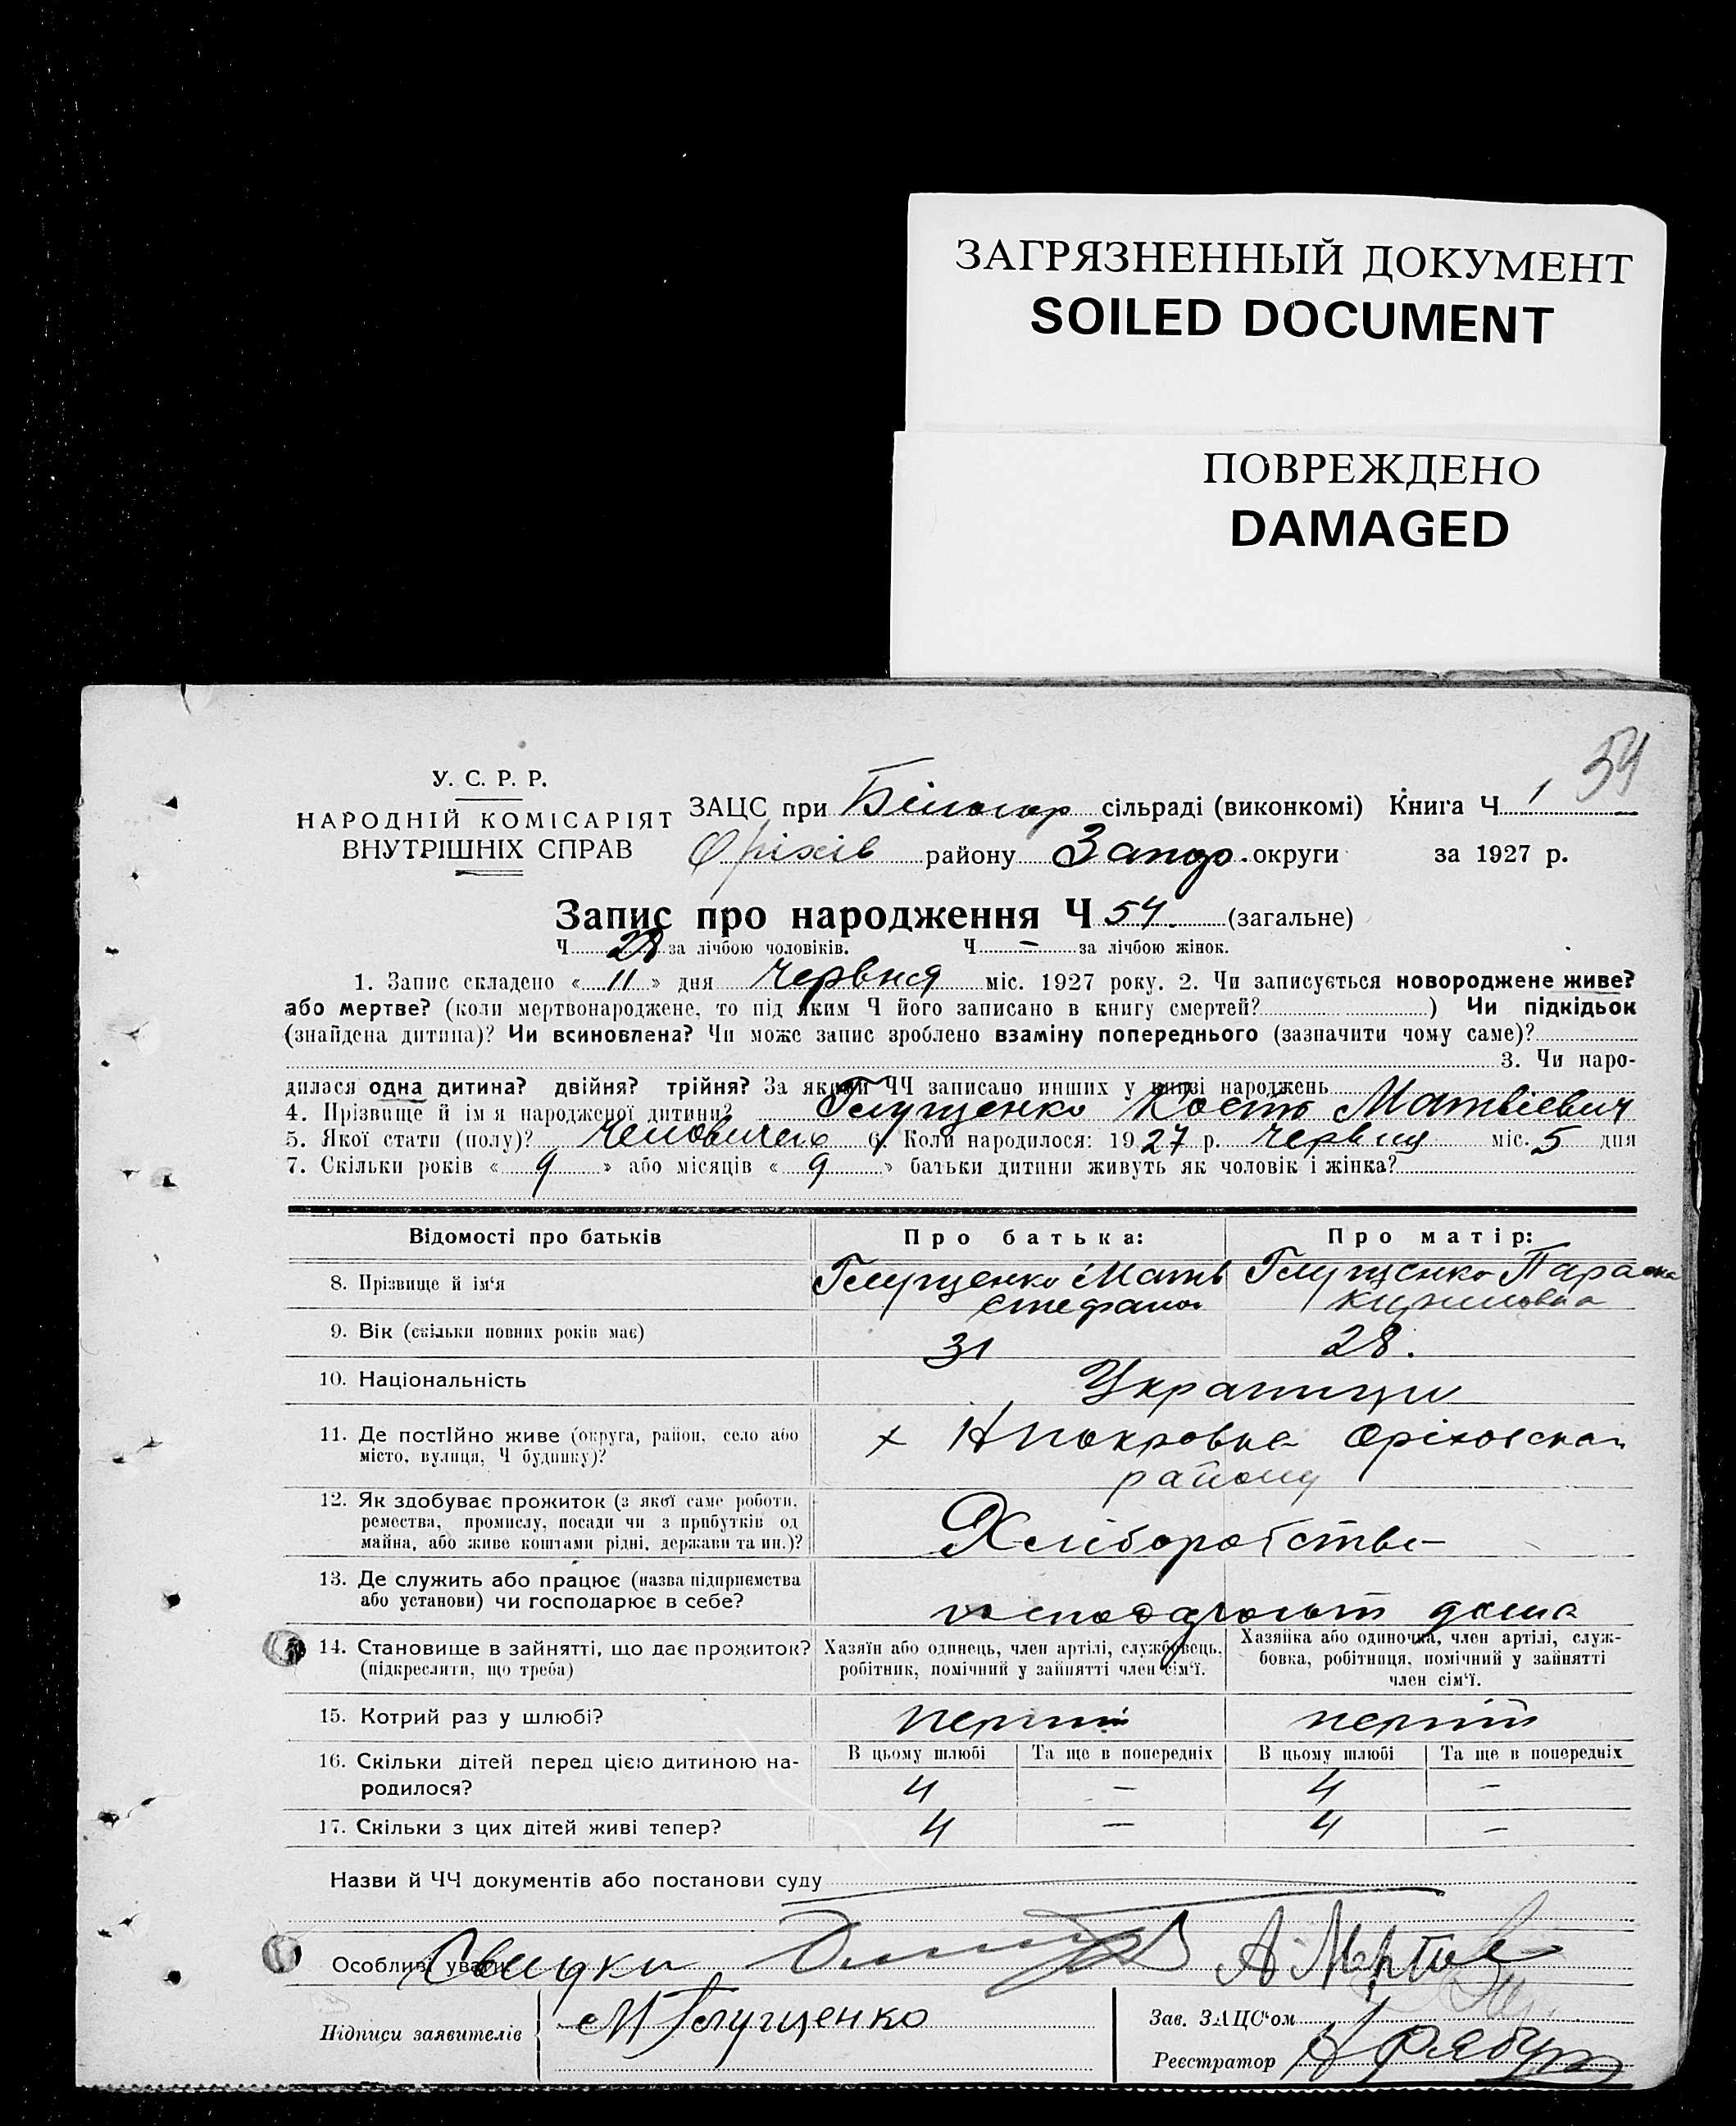 ЗАГРЯЗНЕННЫЙ ДОКУМЕНТ
SOILED DOCUMENT
ПОВРЕЖДЕНО
DAMAGED
54
У. С. Р. Р.
НАРОДНІЙ КОМІСАРІЯТ
ВНУТРІШНІХ СПРАВ
ЗАЦС при Білогор сільраді (виконкомі) Книга Ч 1
Оріхів району Запор. округи за 1927 р.
Запис про народження Ч 54. (загальне)
Ч 28 за лічбою чоловіків. Ч — за лічбою жінок.
1. Запис складено « 11 » дня червня міс. 1927 року. 2. Чи записується новороджене живе?
або мертве? (коли мертвонароджене, то під яким Ч його записано в книгу смертей? ) Чи підкідьок
(знайдена дитина)? Чи всиновлена? Чи може запис зроблено взаміну попереднього (зазначити чому саме)?
3. Чи наро-
дилася одна дитина? двійня? трійня? За якими ЧЧ записано инших у книзі народжень
4. Прізвище й ім я народженої дитини? Глущенко Кость Матвієвич
5. Якої стати (полу)? 6. Коли народилося: 1927 р. червня міс. 5 дня
7. Скільки років « 9 » або місяців « 9 » батьки дитини живуть як чоловік і жінка?
Відомості про батьків
Про батька:
Про матір:
8. Прізвище й ім‘я
Глущенко Матв
Стефанов
Глущенко Параска
Кириловна
9. Вік (скільки повних років має)
31
28.
10. Національність
Українци
11. Де постІйно живе (округа, район, село або
місто, вулиця, Ч будинку)?
х Нпокровка Оріховскаи
району
12. Як здобуває прожиток (з якої саме роботи,
ремества, промислу, посади чи з прибутків од
майна, або живе коштами рідні, держави та ин.)?
Хліборобство
13. Де служить або працює (назва підприємства
або установи) чи господарює в себе?
дома
14. Становище в зайнятті, що дає прожиток?
(підкреслити, що треба)
Хазяїн або одинець, член артілі, службовець,
робітник, помічний у зайнятті член сім‘ї.
Хазяйка або одиночка, член артілі, служ-
бовка, робітниця, помічний у зайнятті
член сім‘ї.
15. Котрий раз у шлюбі?
перший
перший
16. Скільки дітей перед цією дитиною на-
родилося?
В цьому шлюбі
Та ще в попередніх
В цьому шлюбі
Та ще в попередніх
4 — 4 —
17. Скільки з цих дітей живі тепер?
4 — 4 —
Назви й ЧЧ документів або постанови суду
Особливі уваги:
Підписи заявителів
М Глущенко
Зав. ЗАЦС‘ом
Реєстратор